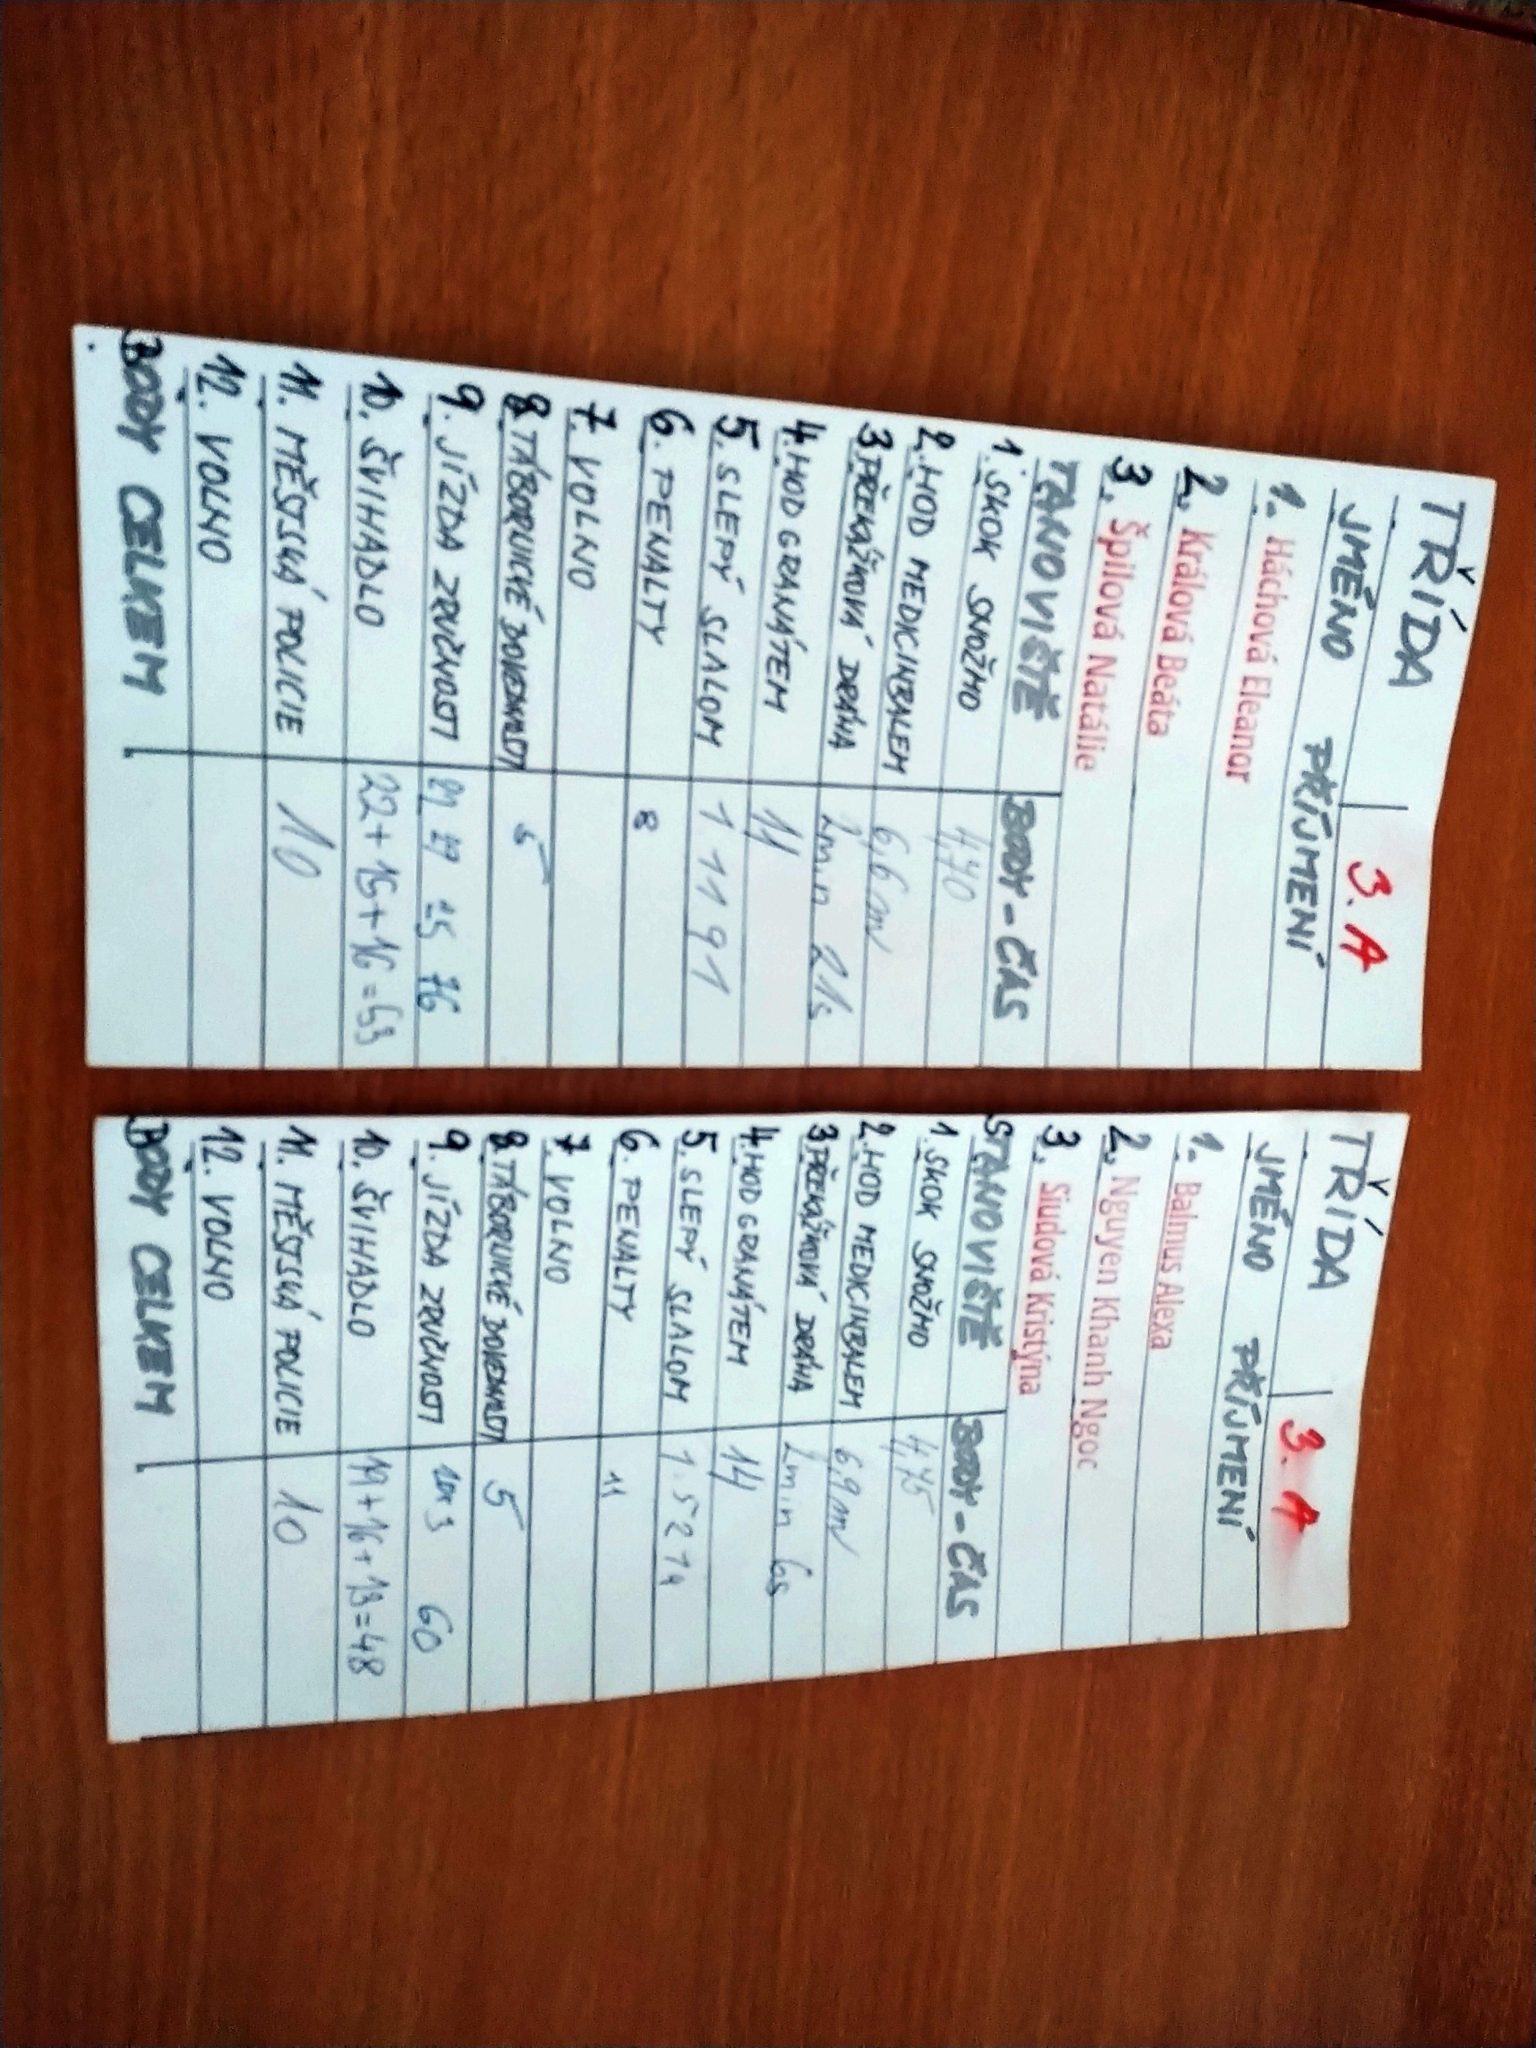 TŘÍDA 3. A
JMÉNO PŘÍJMENÍ
1. Háchová Eleanor
2. Králová Beáta
3. Špilová Natálie
STANOVIŠTĚ BODY-ČAS
1. SKOK SNOŽMO 4,70
2. HOD MEDICINBALEM 6,6m
3. PŘEKÁŽKOVÁ DRÁHA 2min 21s
4. HOD GRANÁTEM 11
5. SLEPÝ SLALOM 1 11 91
6. PENALTY 8
7. VOLNO
8. TÁBORNICKÉ DOVEDNOSTI 5
9. JÍZDA ZRUČNOSTI 25 76
10. ŠVIHADLO 22+15+16=53
11. MĚSTSKÁ POLICIE 10
12. VOLNO
BODY CELKEM
TŘÍDA 3. A
JMÉNO PŘÍJMENÍ
1. Balmus Alexa
2. Nguyen Khanh Ngoc
3. Siudová Kristýna
STANOVIŠTĚ BODY-ČAS
1. SKOK SNOŽMO 4,75
2. HOD MEDICINBALEM 6,9m
3. PŘEKÁŽKOVÁ DRÁHA 2min 6s
4. HOD GRANÁTEM 14
5. SLEPÝ SLALOM 1.52 14
6. PENALTY 11
7. VOLNO
8. TÁBORNICKÉ DOVEDNOSTI 5
9. JÍZDA ZRUČNOSTI 60
10. ŠVIHADLO 19+16+13=48
11. MĚSTSKÁ POLICIE 10
12. VOLNO
BODY CELKEM